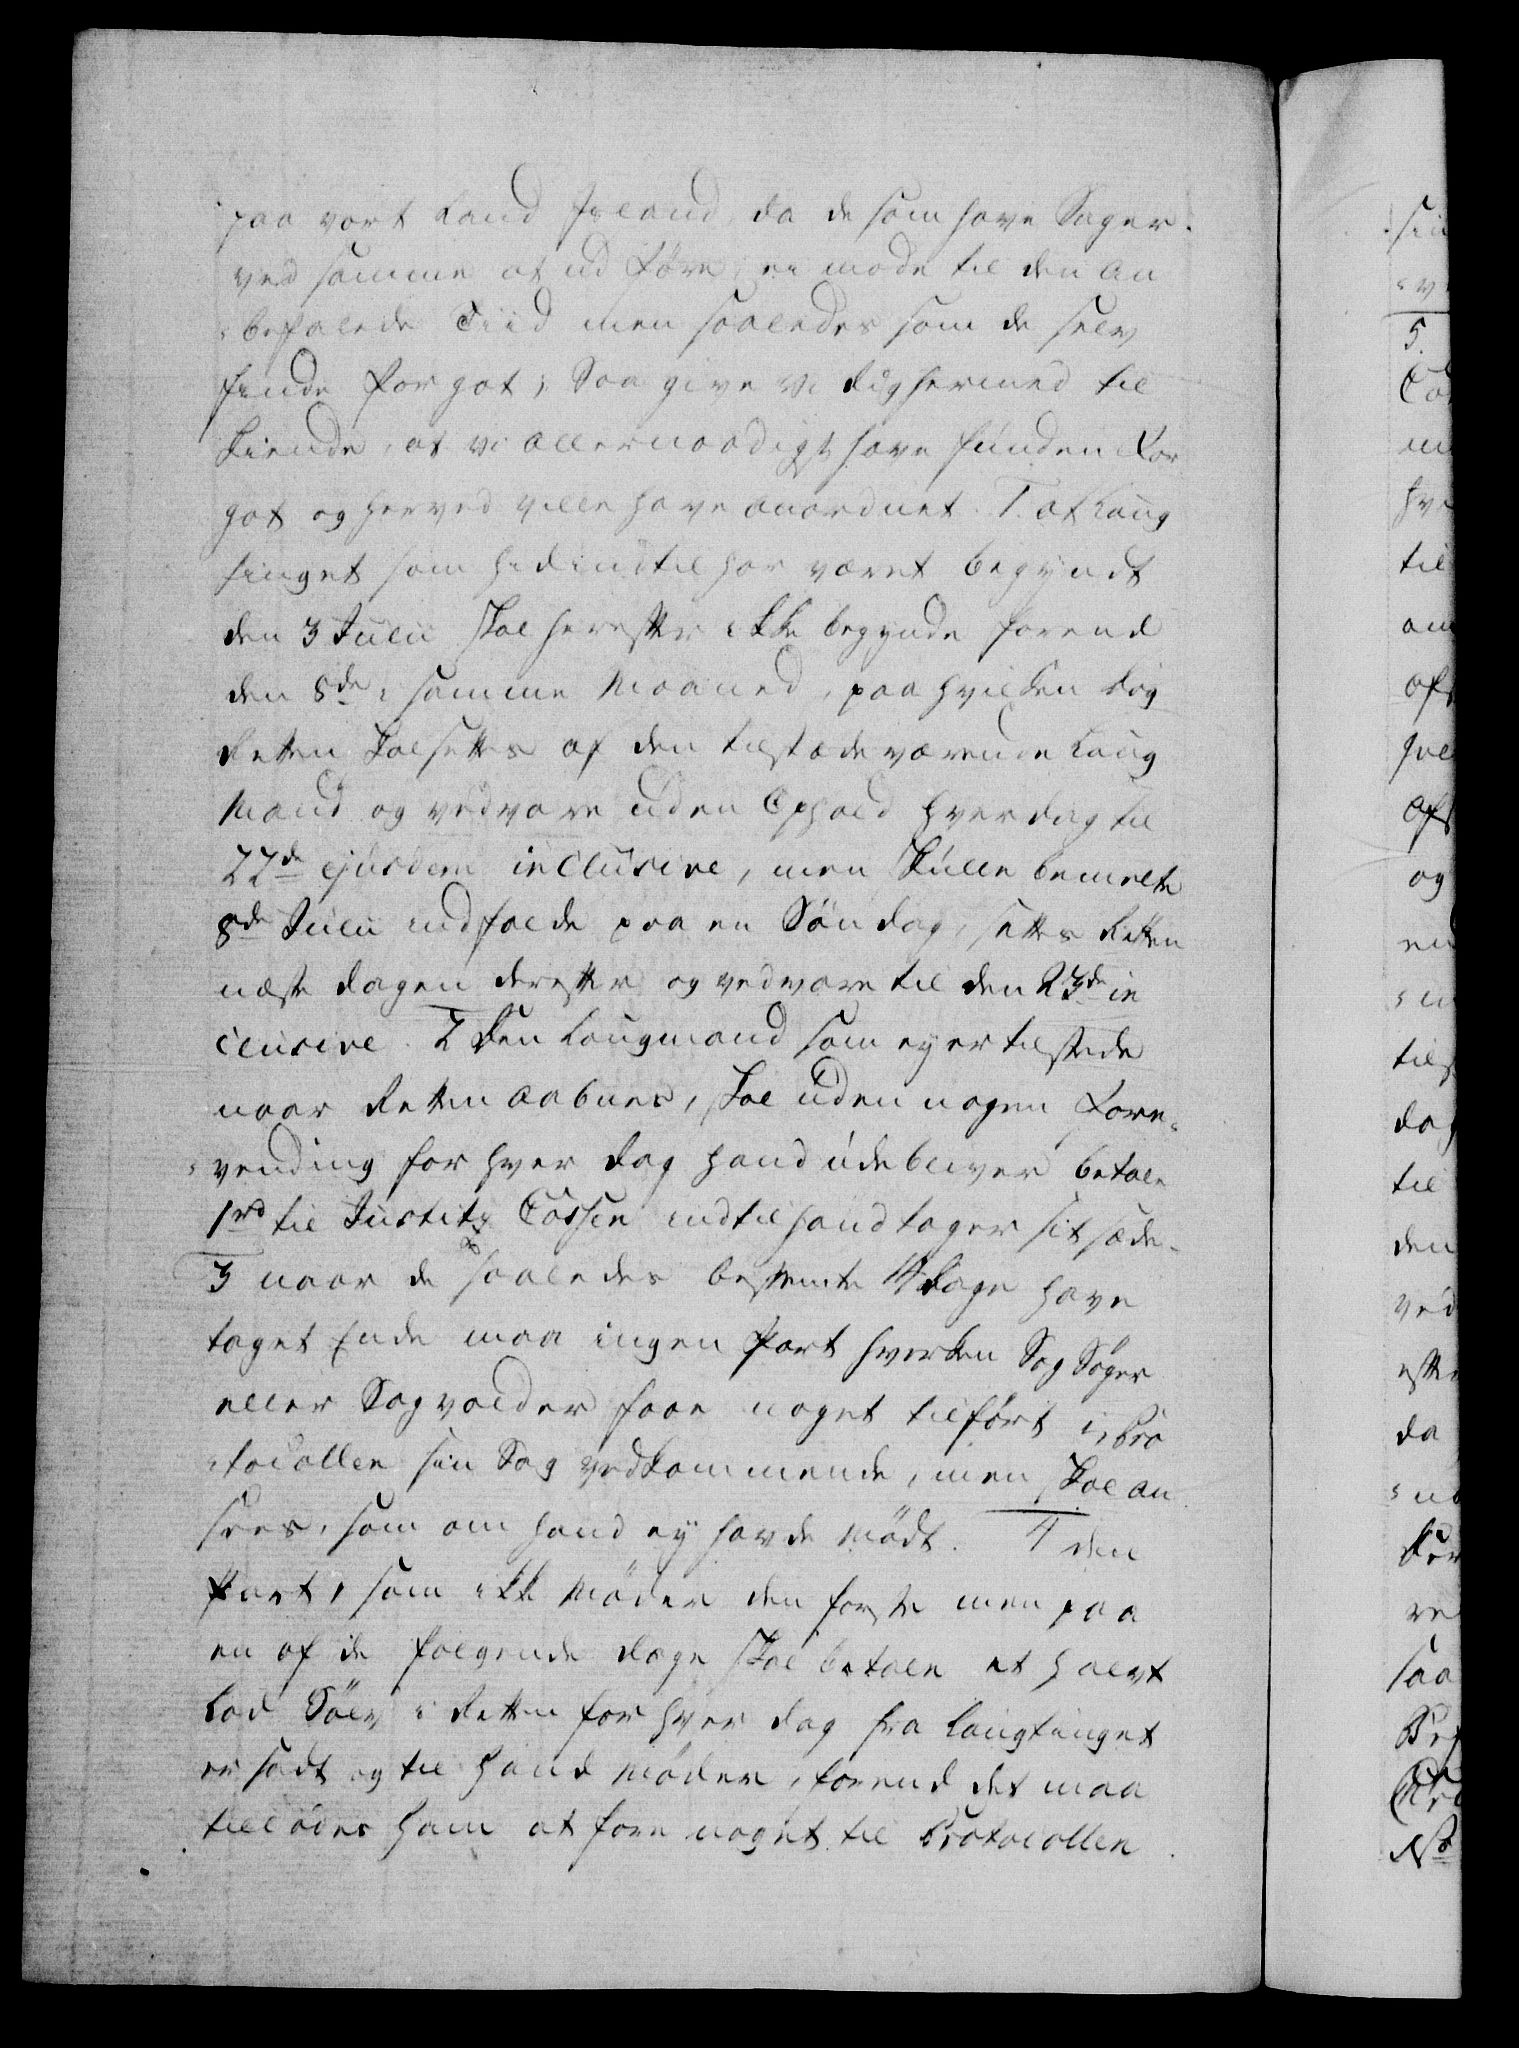 paa vort Land Island, da de som have Sager
ved samme at ud føre, ei møde til den An
befalede Tiid men saaledes som de selv
finde for got; Saa give Vi dig hermed til
kiende, at Vi Allernaadigst have funden for
got og herved ville have anordnet. 1. at Laug
tinget som hidindtil har været begyndt
den 3 Julii skal herefter ikke begynde forend
den 8de i samme Maaned, paa hvilken dag
Retten skal settes af den tilstædeværende Laug
Mand og vedvare uden Ophold hver dag til
22de ejusdem inclusive, men skulle bemelte
8de Julii indfalde paa en Søndag, settes Retten
næste dagen derefter og vedvare til den 23de in
clusive. 2 Den Laugmand som ey er tilstede
naar Retten aabnes, skal uden nogen Fore-
vending for hver dag hand udebliver betale
1rd til Justitz Cassen indtil hand tager sit sæde.
3 naar de saaledes bestemte 14 dage have
taget Ende maa ingen Part hverken Sag Søger
eller Sagvolder faae noget tilført i Pro
tocollen sin Sag vedkommende, men skal an
sees, som om hand ey havde mødt. 4 den
Part, som ikke møder den første men paa
en af de følgende dage skal betale et halvt
Lod Sölv i Retten for hver dag fra Laugtinget
er sadt og til hand møder, forend det maa
tillades ham at føre noget til Protocollen